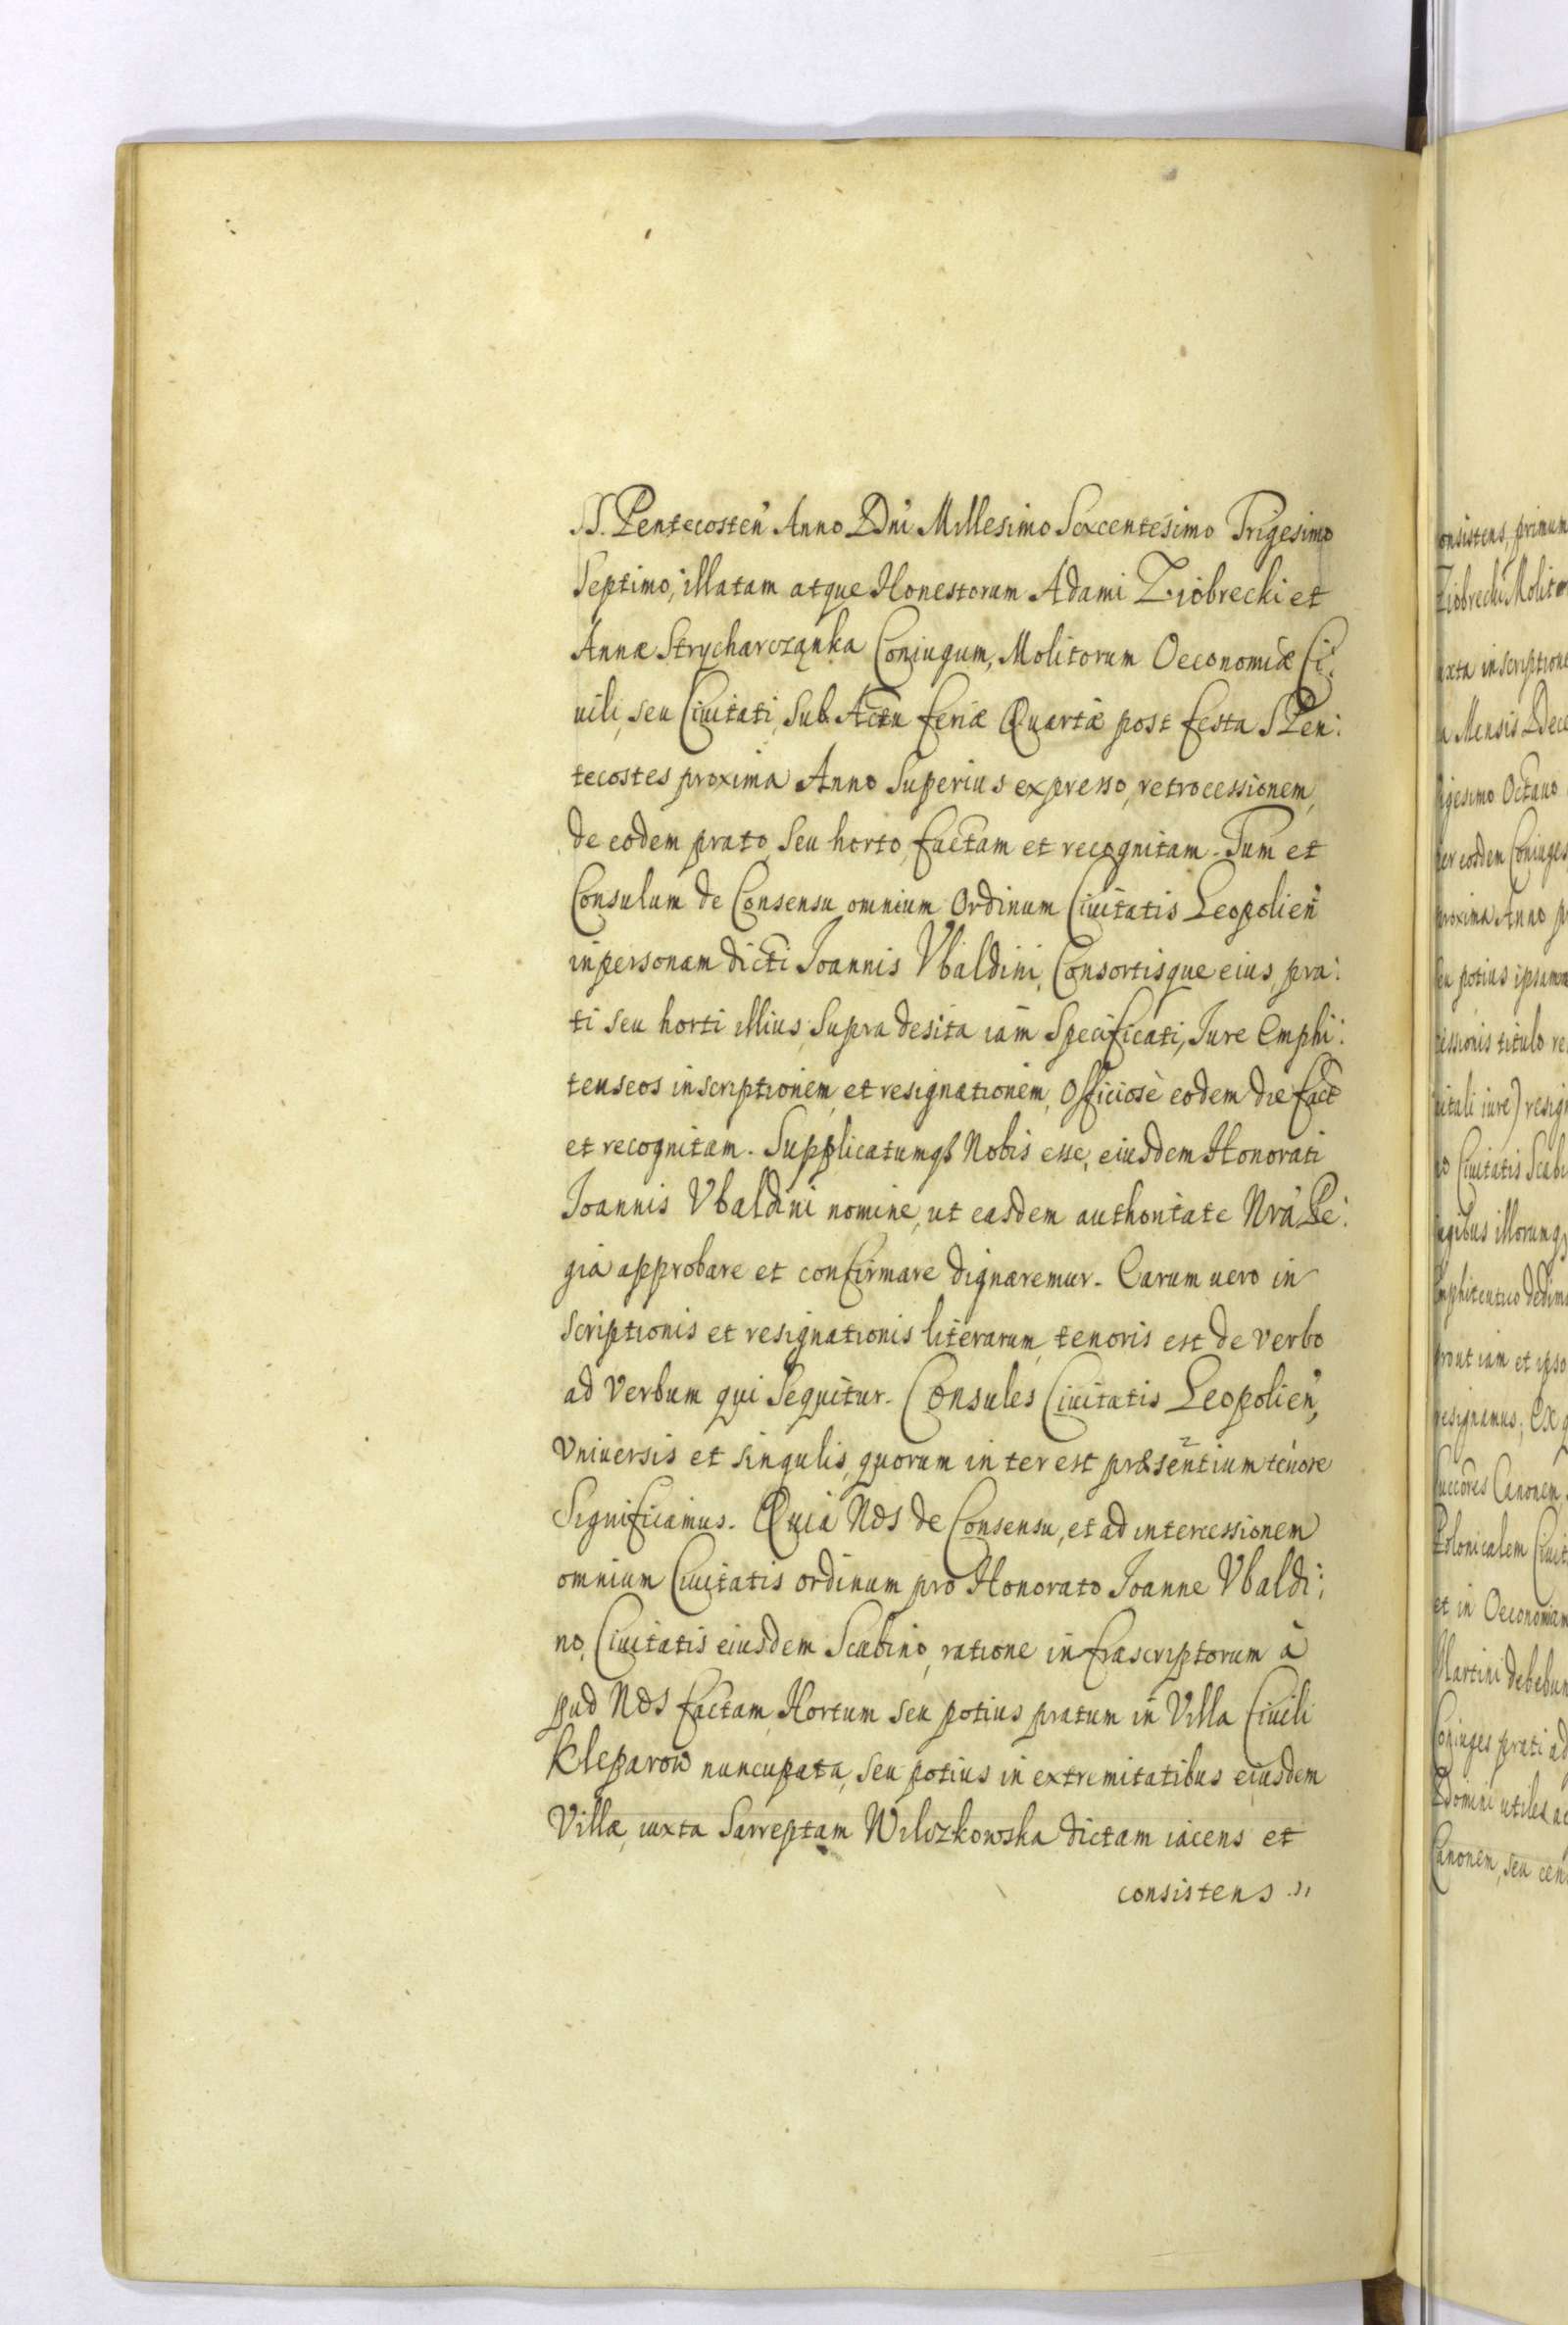 SS. Pentecosteñ Anno Dni Millesimo Sexcentesimo Trigesimo
Septimo, illatam atque Honestorum Adami Ziobrecki et
Annæ Strycharcząnka Coniugum, Molitorum Oeconomiæ Ci:
uili, seu Ciuitati, Sub Actu feriæ Quartæ post festa S Pen:
tecostes proxima Anno Superius expresso, retrocessionem,
de eodem prato, seu horto, factam et recognitam. Tum et
Consulum de Consensu omnium Ordinum Ciuitatis Leopolieñ
in personam dicti Ioannis Vbaldini, Consortisque eius, pra:
ti seu horti illius, Supra desita iam Specificati, Iure Emphi:
teuseos inscriptionem, et resignationem, Officiosè eodem die fact
et recognitam. Supplicatumq3 Nobis esse, eiusdem Honorati
Ioannis Vbaldini nomine, ut easdem authoritate Nrã Re:
gia approbare et confirmare dignaremur. Earum uero in
scriptionis et resignationis literarum, tenoris est de verbo
ad Verbum qui Sequitur. Consules Ciuitatis Leopolieñ,
Vniuersis et singulis, quorum interest præsentium tenore
Significamus. Quia Nos de Consensu, et ad intercessionem
omnium Ciuitatis ordinum pro Honorato Ioanne Vbaldi:
no, Ciuitatis eiusdem Scabino, ratione infrascriptorum à
pud Nos factam, Hortum seu potius pratum in Villa Ciuili
Kleparow nuncupata, seu potius in extremitatibus eiusdem
Villæ, iuxta Sarreptam Wilczkowska dictam iacens et
consistens
onsistens, primum
Ziobrecki Molitor
uxta inscriptione
a Mensis Dece
igesimo Octauo
per eosdem Coniuges
proxima Anno p
seu potius ipsamm
cessionis titulo re
itali iure) resign
no Ciuitatis Scabi
ugibus illorumq3
Emphiteutico dedim
prout iam et ipso
resignamus, Ex q
succores Canonem
Polonicalem Ciuit
et in Oeconomiam
Martini debebun
Coniuges prati ad
Domini utiles ac
Canonem, seu cen